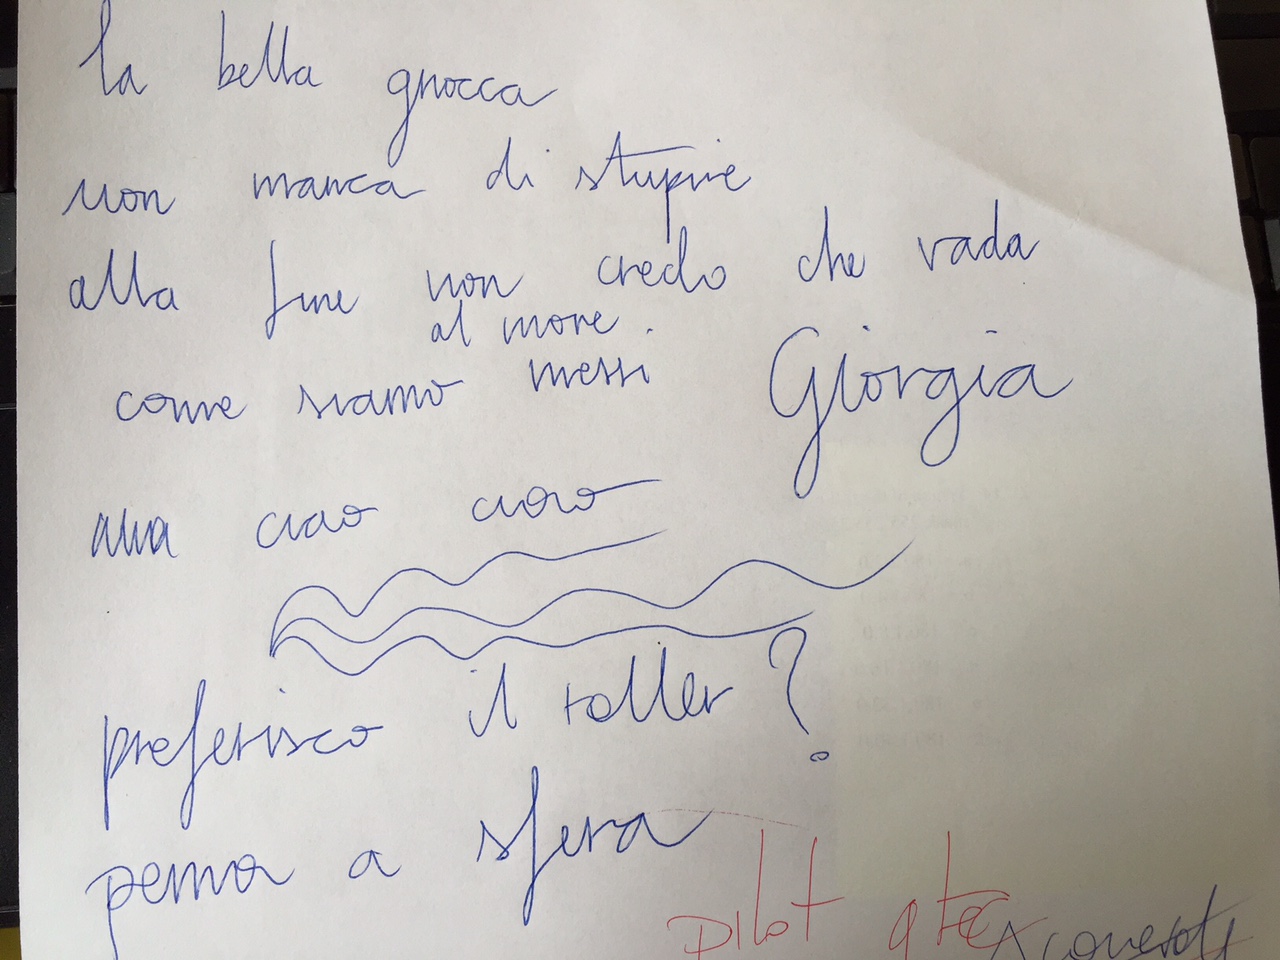 la bella gnocca
non manca di stupire
alla fine non credo che vada
al more.
come siamo messi Giorgia
ciao
preferisco il roller?
penna a sfera
pilot